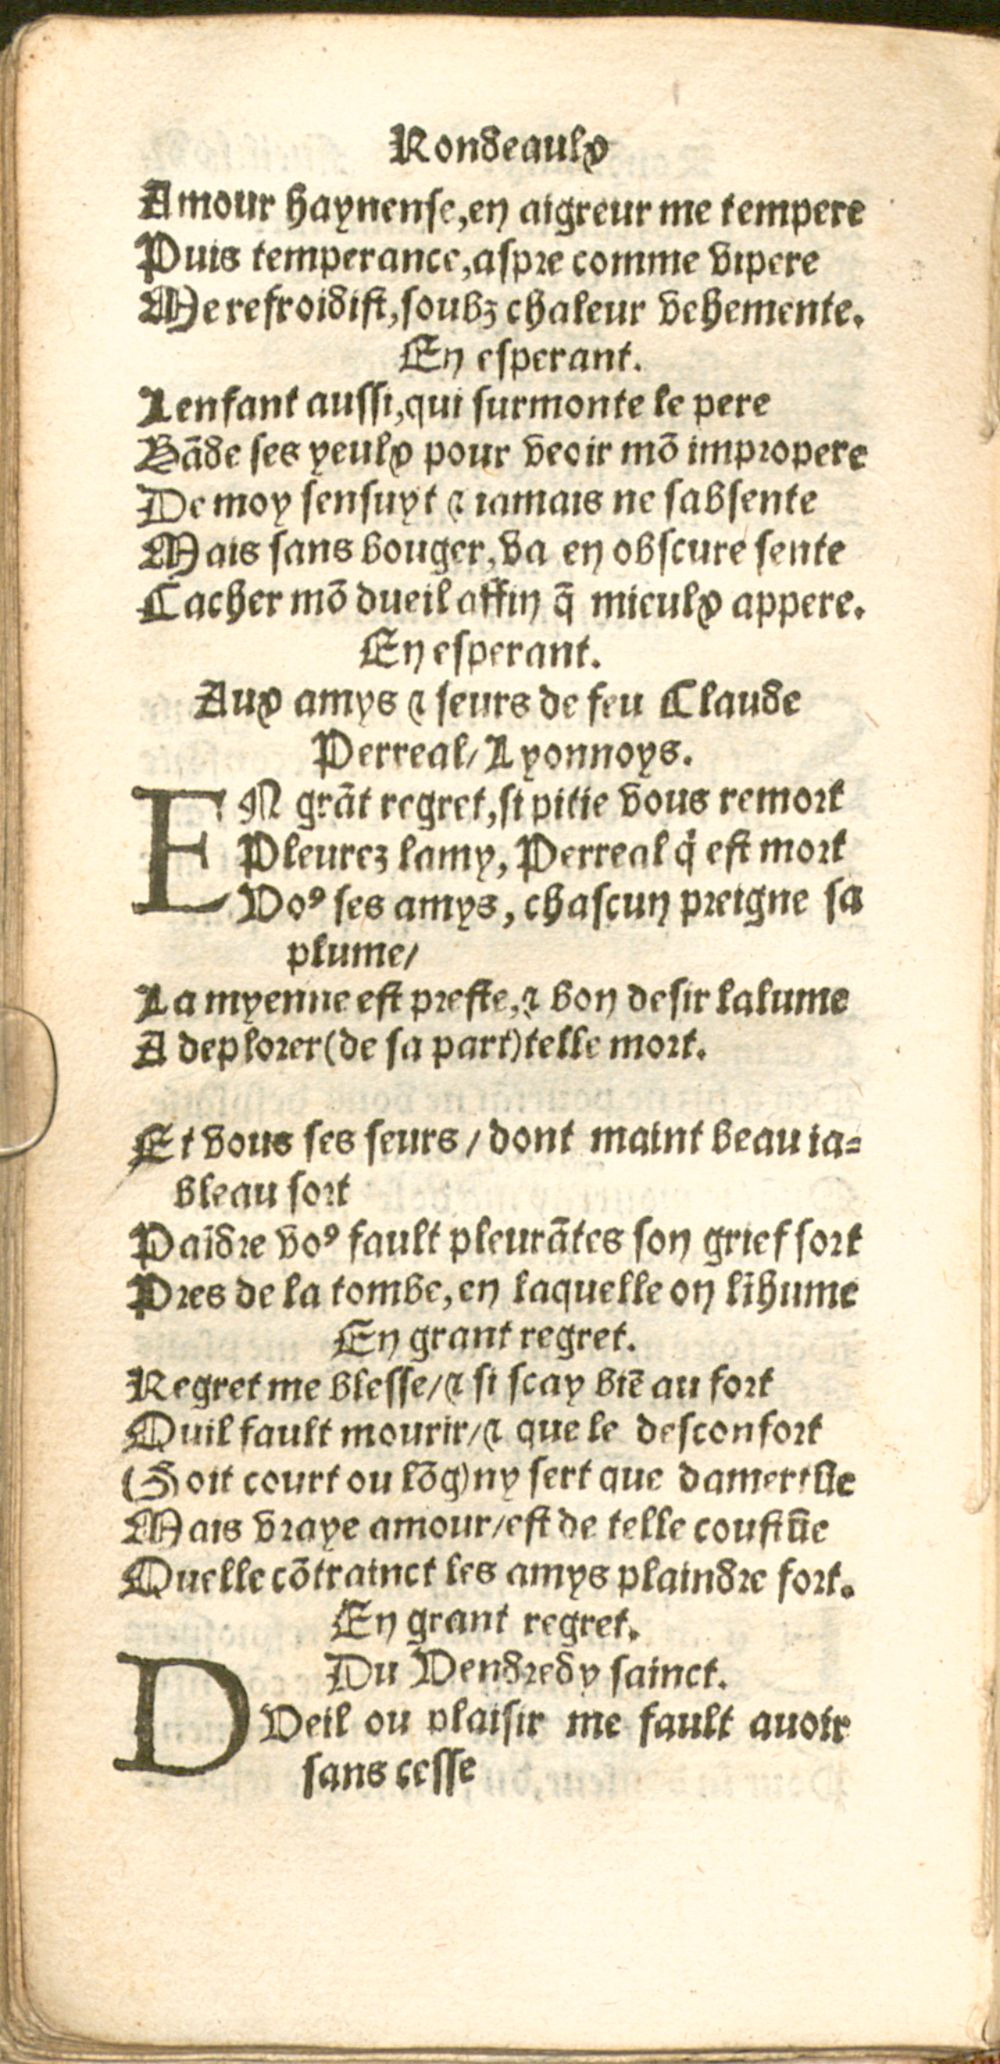 Rondeaulx
Amour haynense, en aigreur me tempere
Puis temperance, aspre comme vipere
Me refroidist, soubz chaleur vehemente.
En esperant.
Lenfant aussi, qui surmonte le pere
Bãde ses yeulx pour veoir mõ impropere
De moy sensuyt & iamais ne sabsente
Mais sans bouger, va en obscure sente
Cacher mõ dueil affin q̃ mieulx appere.
En esperant.
Aux amys & seurs de feu Claude
Perreal/ Lyonnoys.
EN grãt regret, si pitie vous remort
Pleurez lamy, Perreal q̃ est mort
Voꝰ ses amys, chascun preigne sa
plume/
La myenne est preste, & bon desir lalume
A deplorer (de sa part) telle mort.
Et vous ses seurs / dont maint beau ta=
bleau sort
Paĩdre voꝰ fault pleurãtes son grief sort
Pres de la tombe, en laquelle on lĩhume
En grant regret.
Regret me blesse/ & si scay biẽ au fort
Quil fault mourir/ & que le desconfort
(Soit court ou lõg) ny sert que damertũe
Mais vraye amour/ est de telle coustũe
Quelle cõtrainct les amys plaindre fort.
En grant regret.
Du Vendredy sainct.
DVeil ou plaisir me fault auoir
sans cesse